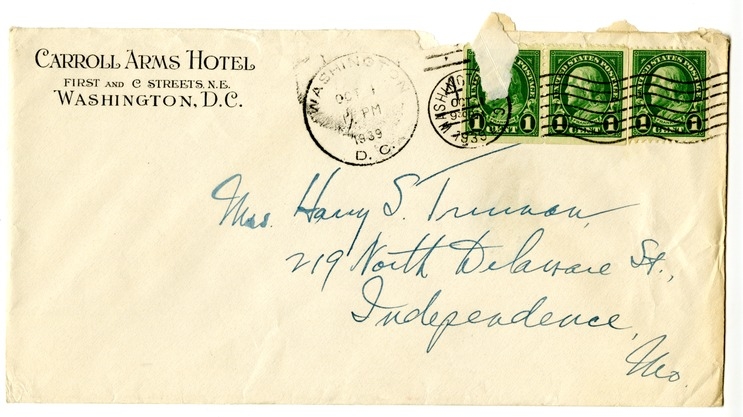 CARROLL ARMS HOTEL
FIRST AND C STREETS, N.E.
WASHINGTON, D.C.
WASHINGTON
OCT 1
PM
1939
D. C.
OC
1939
UNITED STATES POSTAGE
UNITED STATES POSTAGE
1 CENT 1
1 CENT 1
1 CENT 1
Mrs. Harry S. Truman,
219 North Delaware St.,
Independence,
Mo.